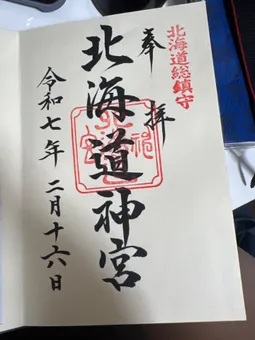 北海道総鎮守
奉拝
北海道神宮
令和七年二月十六日